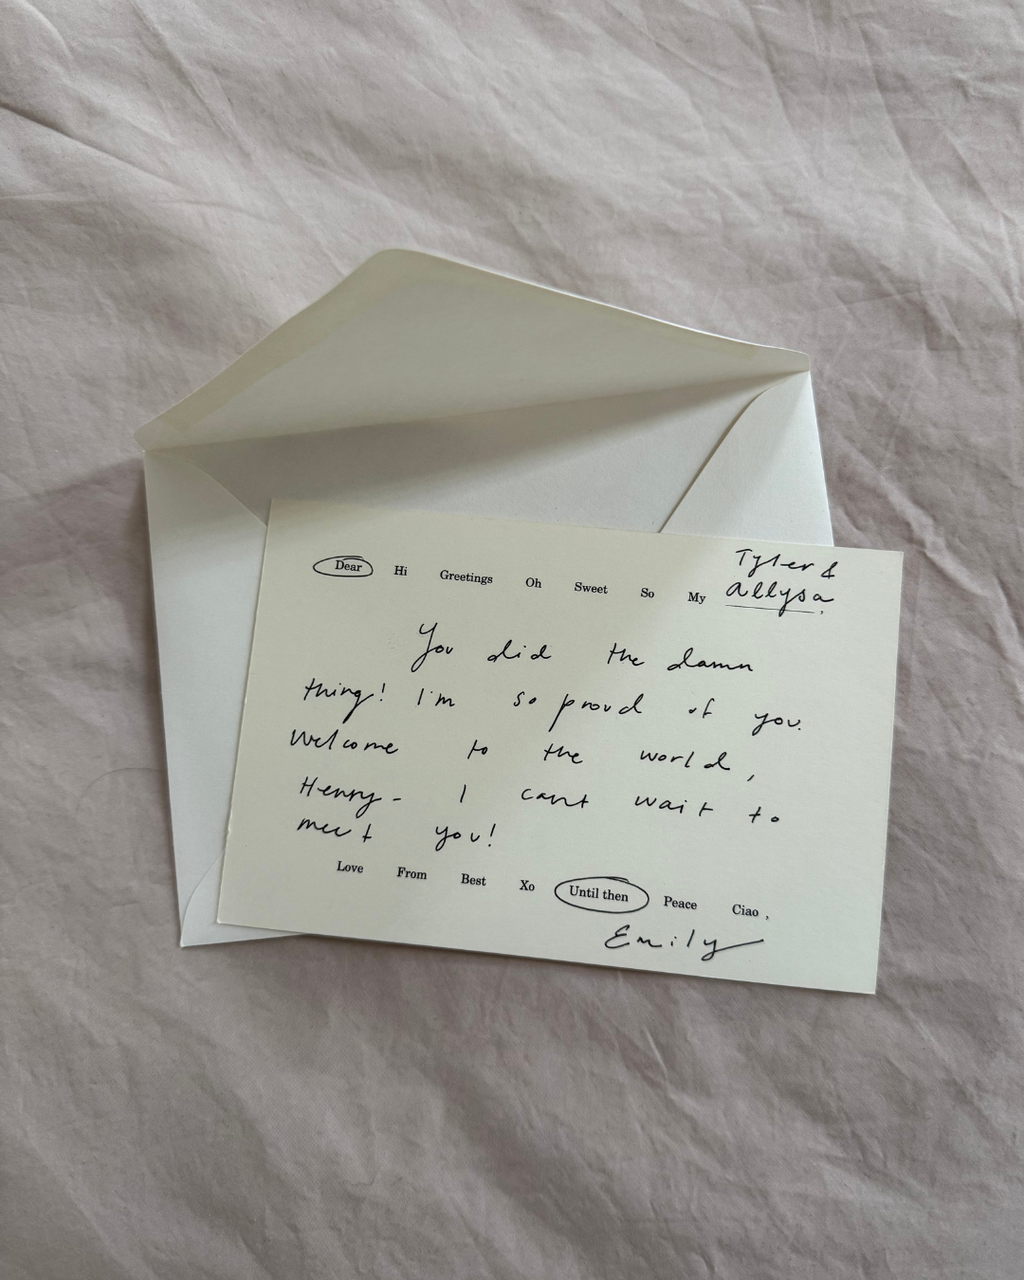 Tyler &
Dear Hi Greetings Oh Sweet So My Allysa,
You did the damn
thing! I'm so proud of you.
Welcome to the world,
Henry- I cant wait to
meet you!
Love From Best Xo Until then Peace Ciao ,
Emily